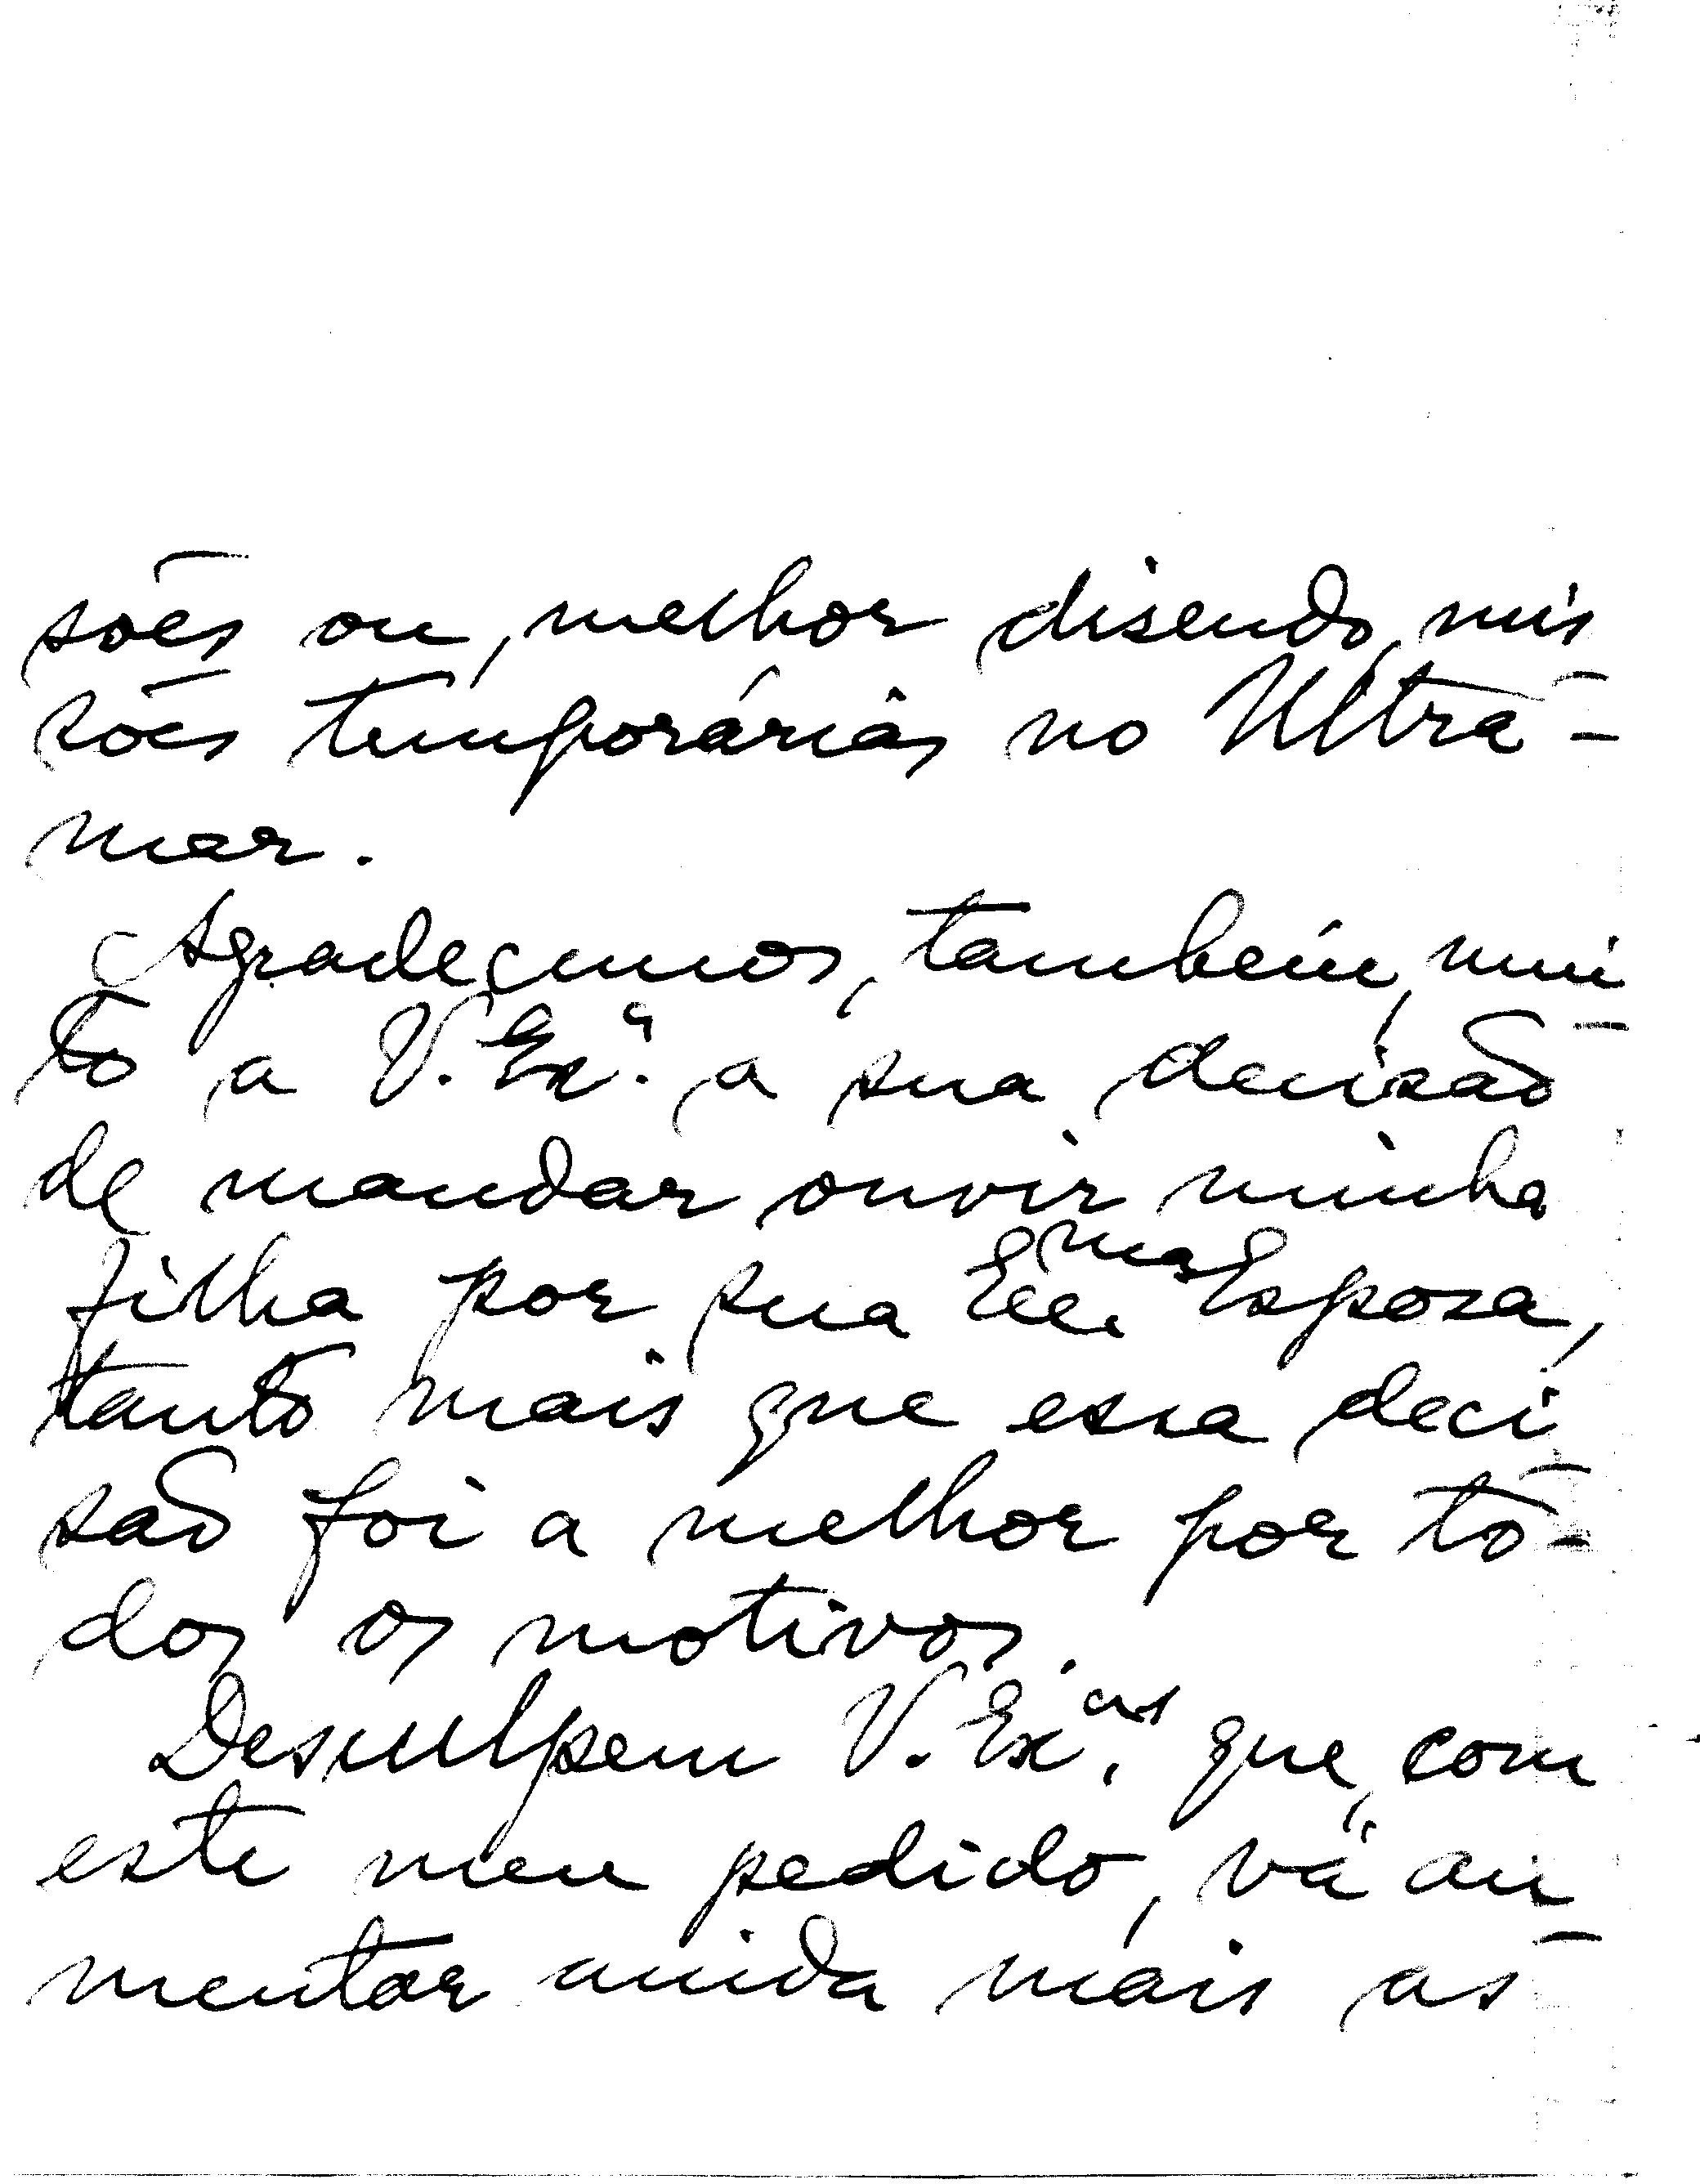 sões ou, melhor disendo, mis
sões temporárias no Ultra-
mar.
Agradecemos, também, mui
to a V. Ex.ª a sua decisão
de mandar ouvir minha
filha por sua Ex.ma Esposa,
tanto mais que essa deci
são foi a melhor por to-
dos os motivos.
Desculpem V. Ex.as que, com
este meu pedido, vá au
mentar ainda mais as